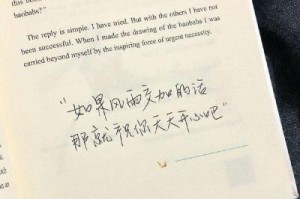 baobabs?"
The reply is simple. I have tried. But with the others I have not
been successful. When I made the drawing of the baobabs I was
carried beyond myself by the inspiring force of urgent necessity.
“如果风雨交加的话
那就祝你天天开心吧”